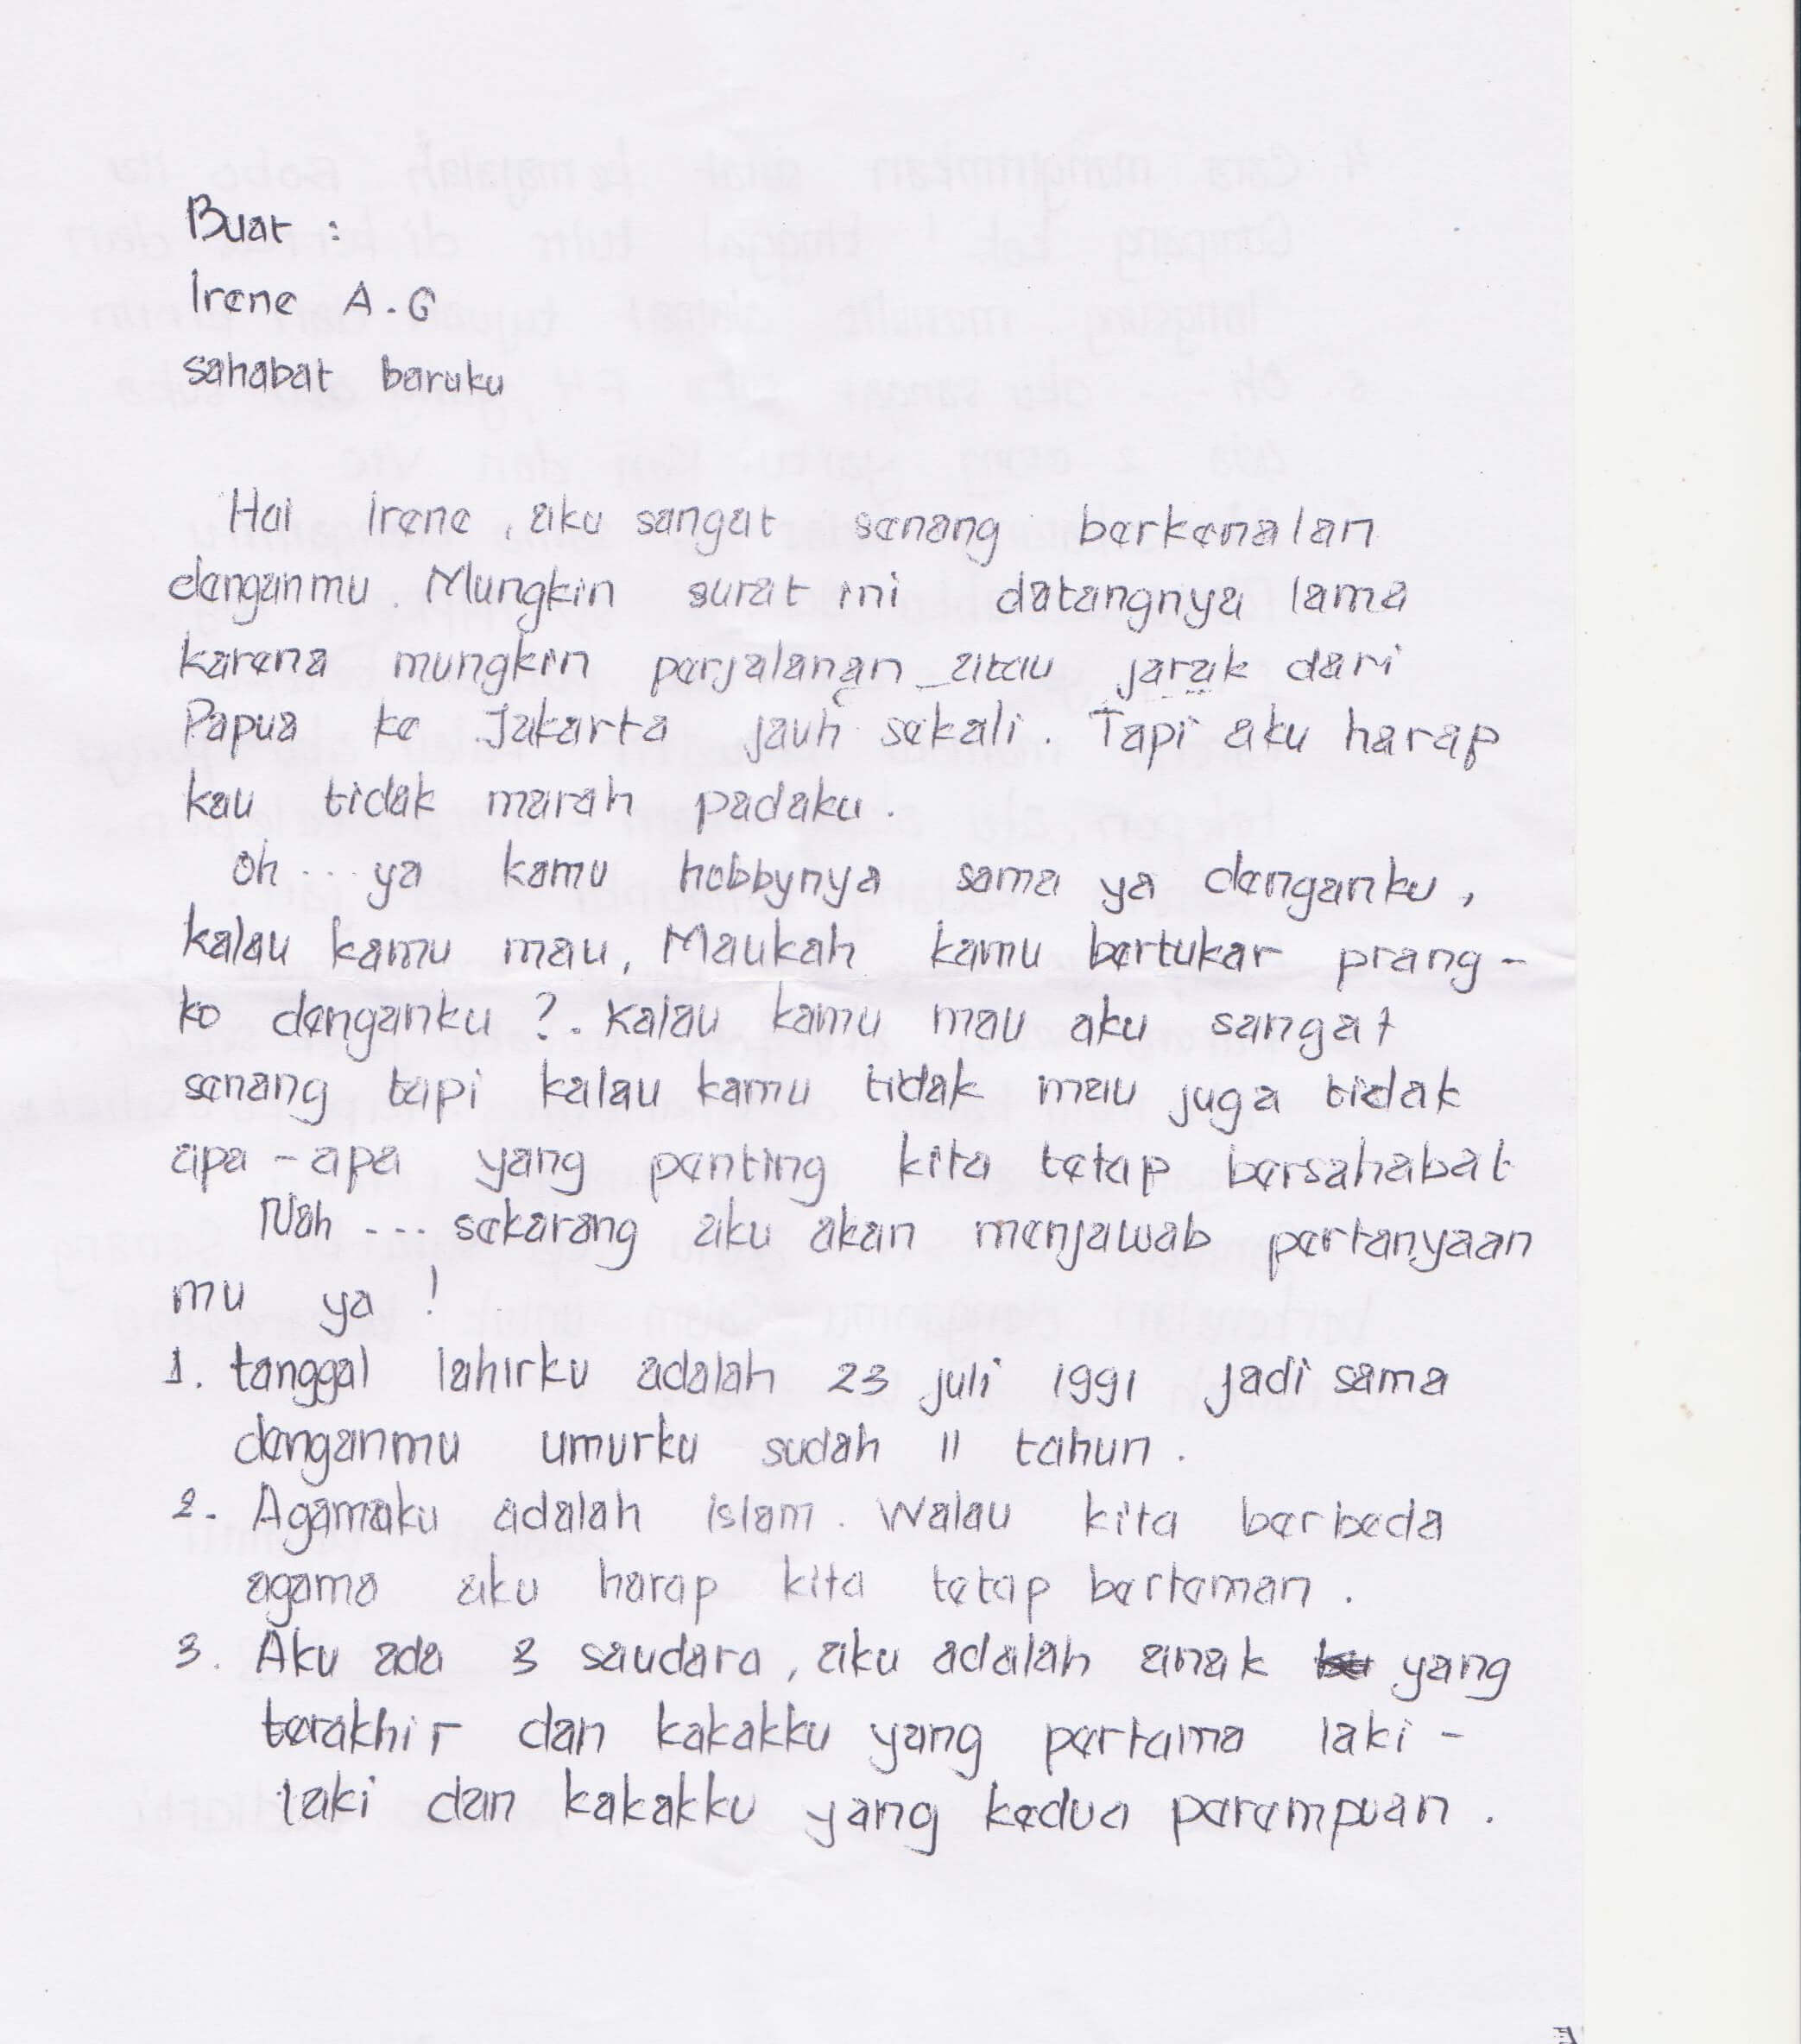 Buat :
Irene A.G
sahabat baruku
Hai Irene, aku sangat senang berkenalan
denganmu. Mungkin surat ini datangnya lama
karena mungkin perjalanan atau jarak dari
Papua ke Jakarta jauh sekali. Tapi aku harap
kau tidak marah padaku.
Oh... ya kamu hobbynya sama ya denganku,
kalau kamu mau, Maukah kamu bertukar prang-
ko denganku ?. Kalau kamu mau aku sangat
senang tapi kalau kamu tidak mau juga tidak
apa-apa yang penting kita tetap bersahabat
Nah --- sekarang aku akan menjawab pertanyaan
mu ya !
1. tanggal lahirku adalah 23 juli 1991 jadi sama
denganmu umurku sudah 11 tahun.
2. Agamaku adalah islam. Walau kita berbeda
agama aku harap kita tetap berteman.
3. Aku ada 3 saudara, aku adalah anak yang
terakhir dan kakakku yang pertama laki-
laki dan kakakku yang kedua perempuan.